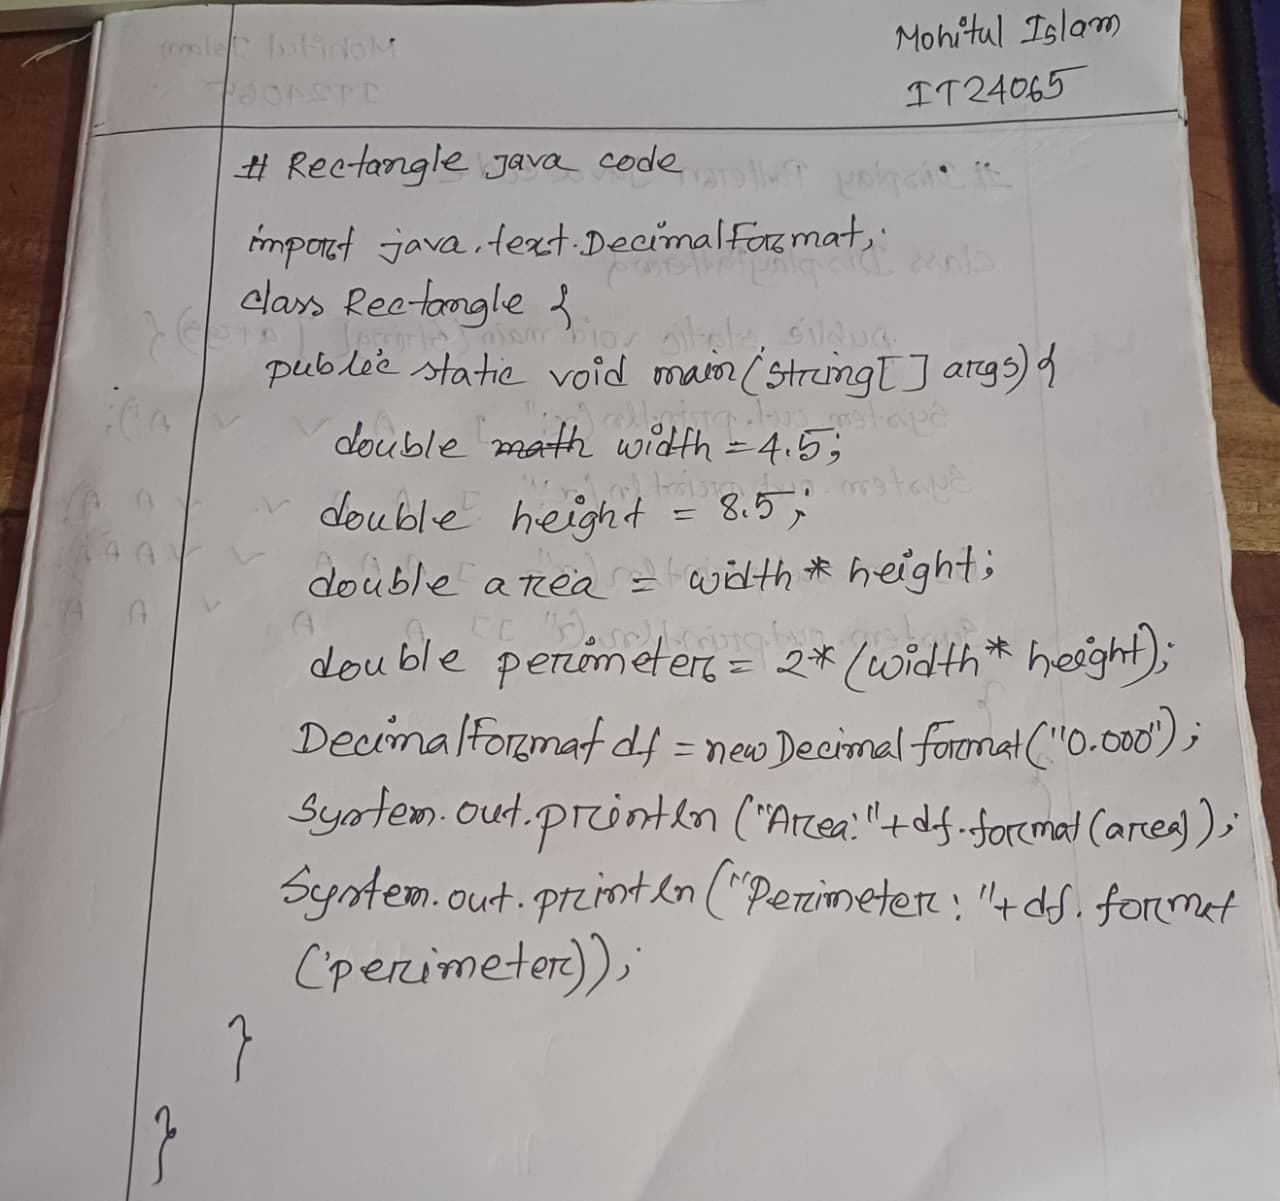 Mohitul Islam
IT24065
# Rectangle java code
import java.text.DecimalFormat;
class Rectangle {
public static void main(String[] args){
double math width = 4.5;
double height = 8.5;
double area = width * height;
double perimeter = 2*(width * height);
DecimalFormat df = new Decimal format("0.000");
System.out.println("Area:"+df.format(area));
System.out.println("Perimeter: "+df.format
(perimeter));
}
}